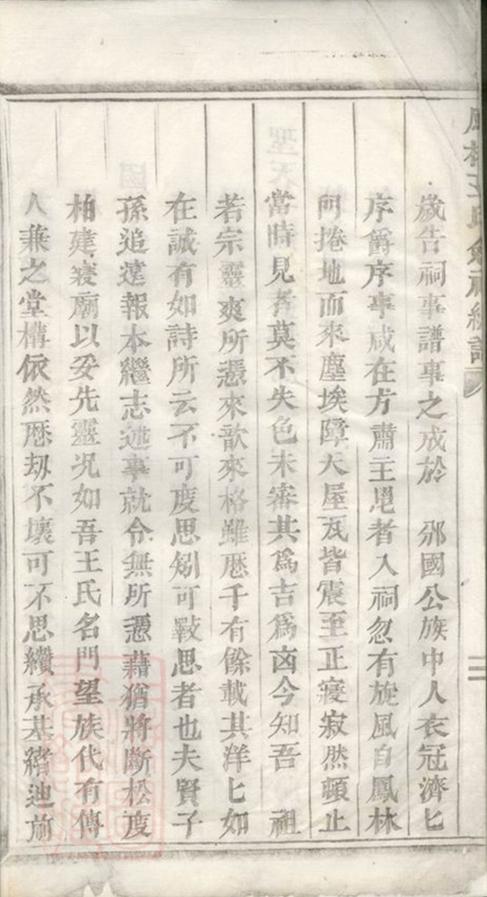 歲告祠事譜事之成於　邠國公族中人衣冠濟匕
序爵序事咸在方肅主鬯者入祠忽有旋風自鳳林
門捲地而來塵埃障天屋瓦皆震至正寢寂然頓止
當時見者莫不失色未審其爲吉爲凶今知吾　祖
若宗靈爽所憑來歆來格雖歷千有餘載其洋匕如
在誠有如詩所云不可度思矧可斁思者也夫賢子
孫追遠報本繼志述事就令無所憑藉猶將斷松度
柏建寢廟以妥先靈況如吾王氏名門望族代有傳
人兼之堂構依然歷刼不壞可不思纘承基緒迪前